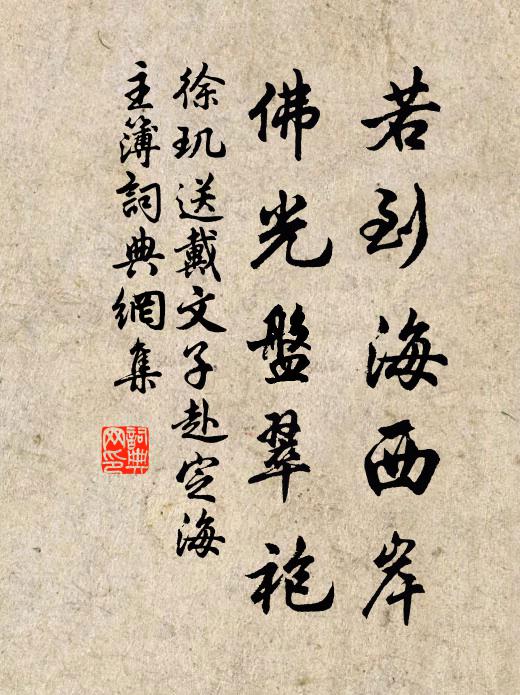 若到海西岸
佛光盤翠袍
徐玑送戴文子赴定海
主簿詞典網集
詞典网印